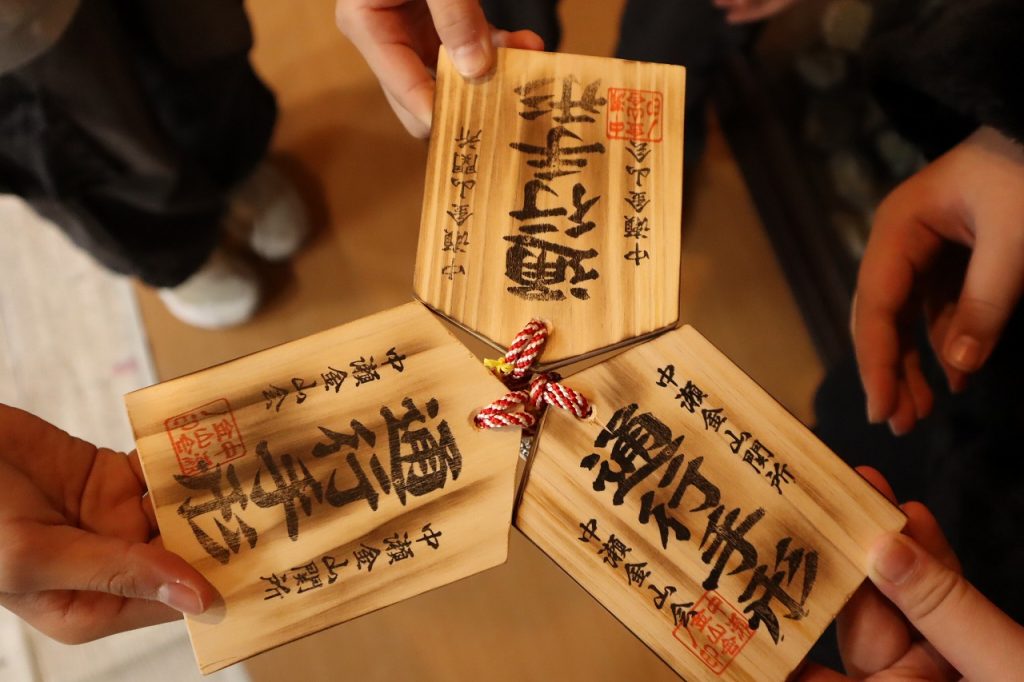 中瀬金山関所
通行手形
中瀬金山会
中瀬金山関所
通行手形
中瀬金山会
中瀬金山関所
通行手形
中瀬金山会